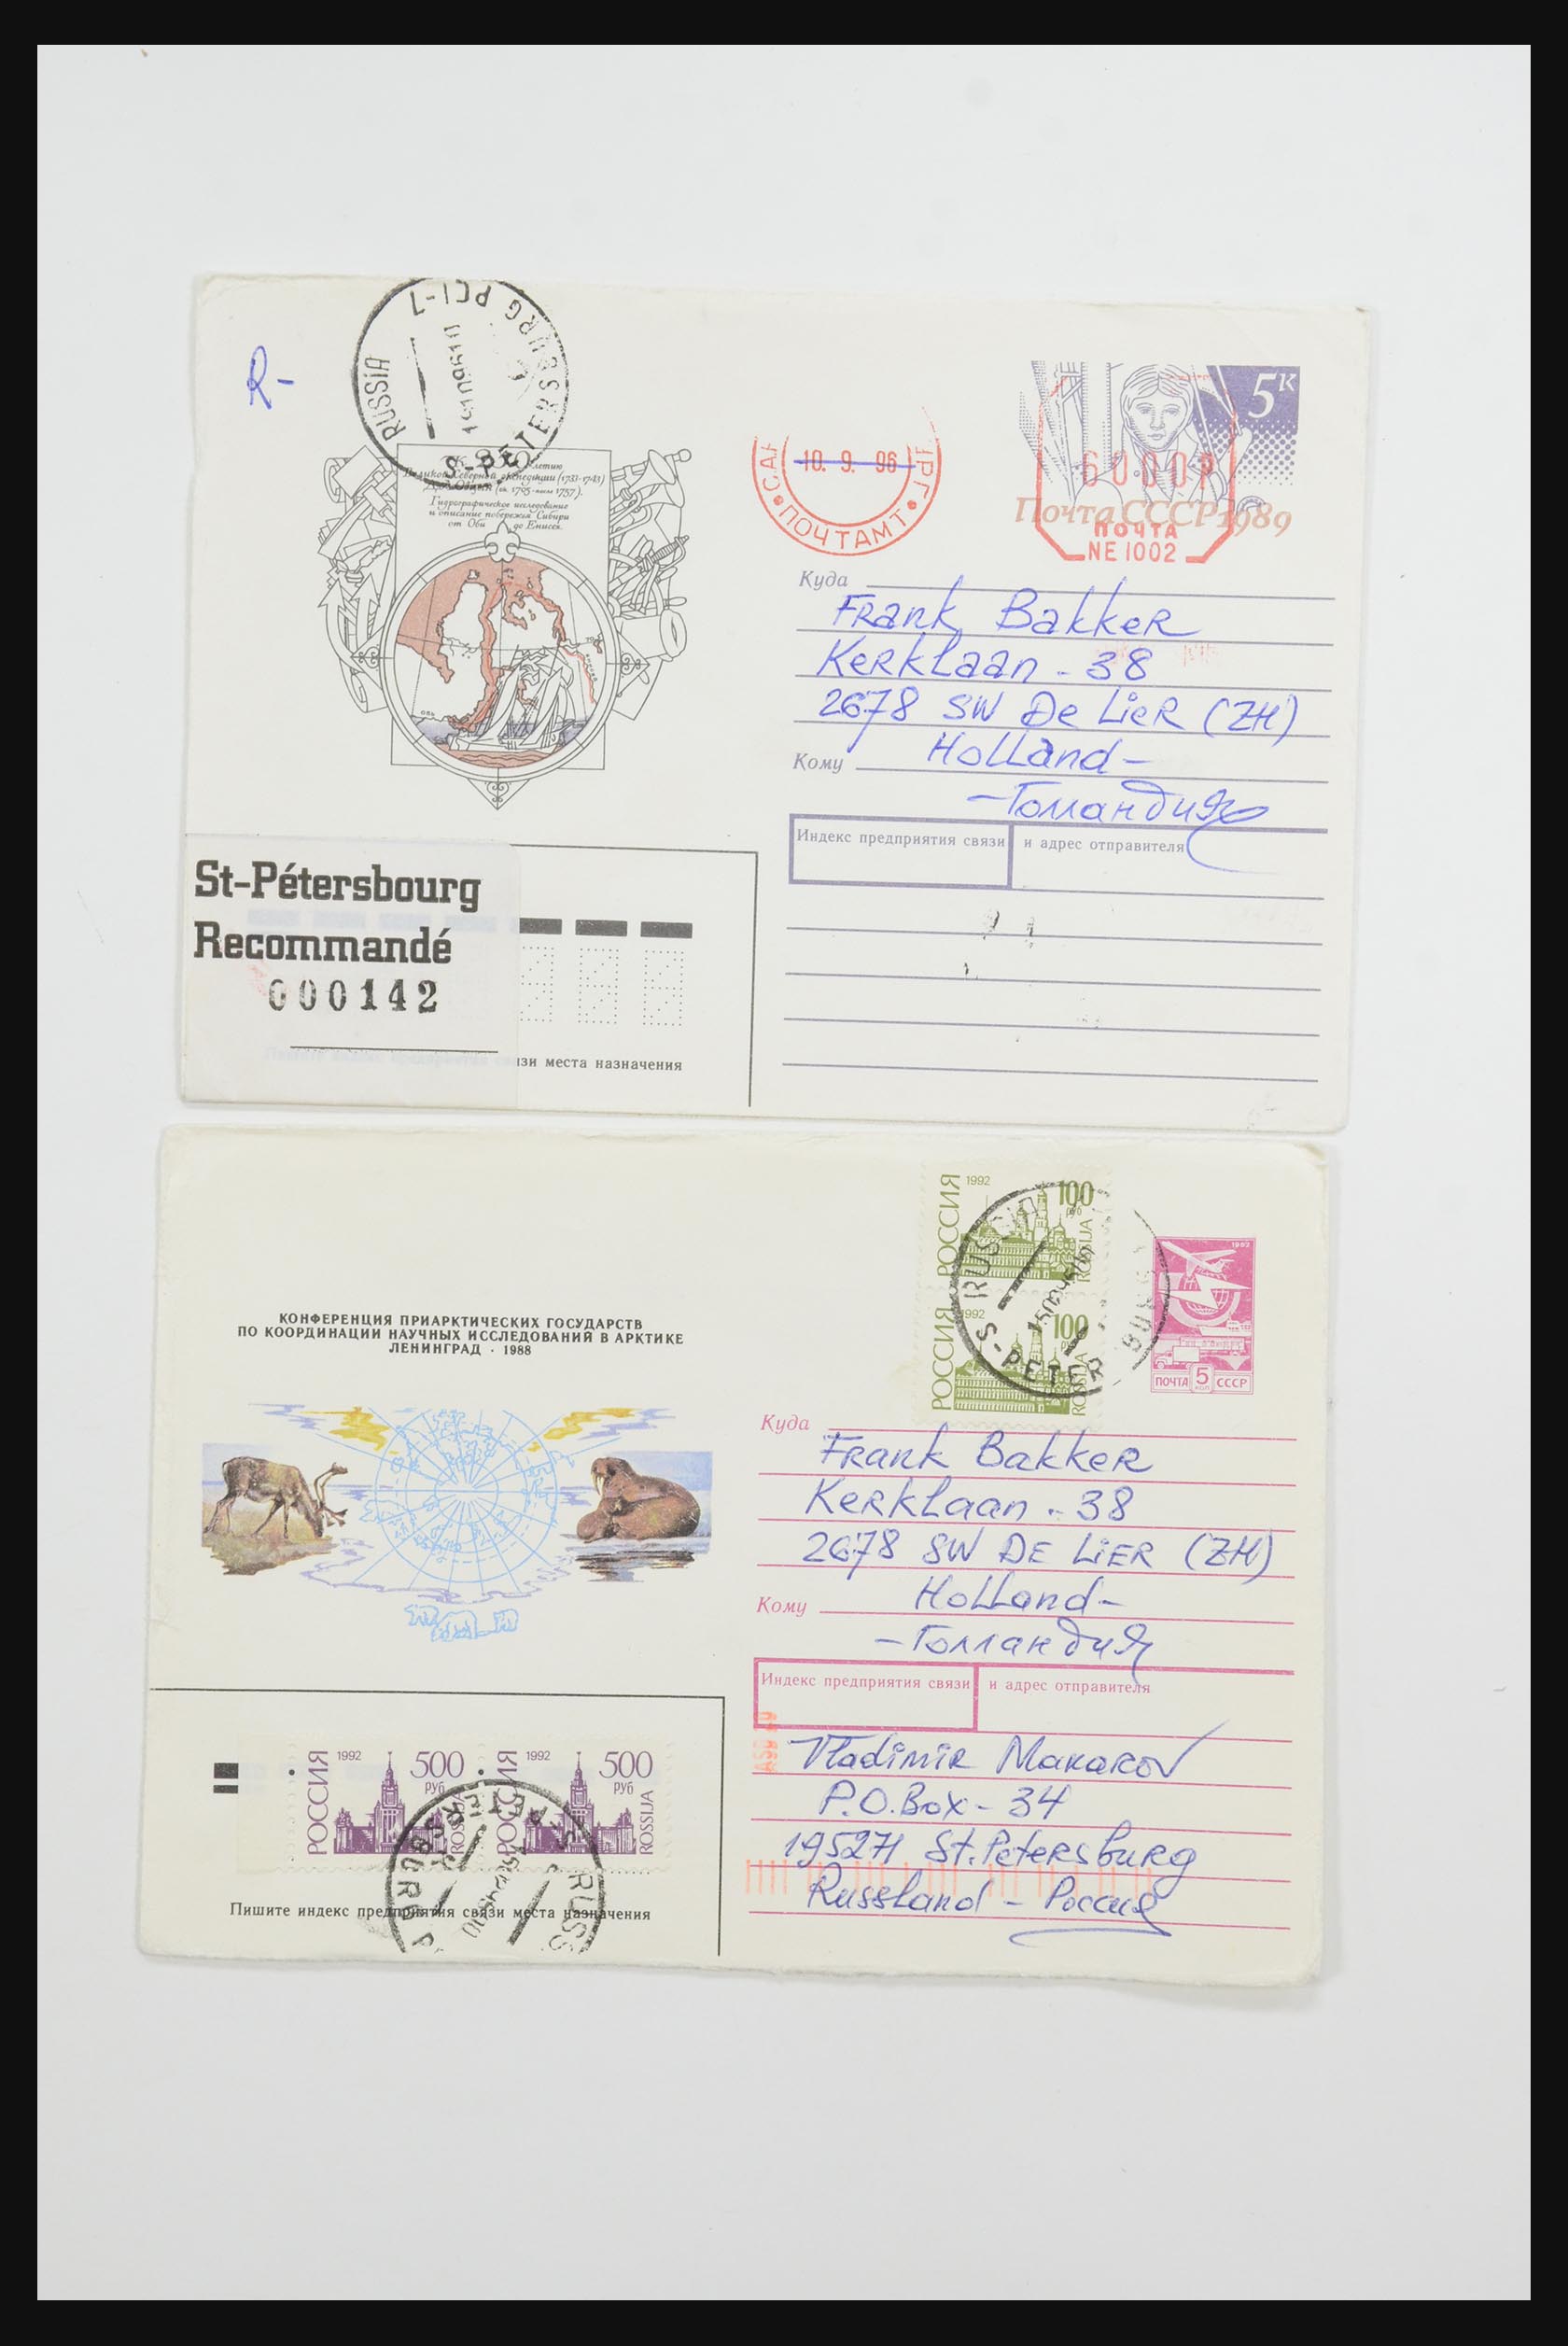 R-
RUSSIA
S-PETERSBURG PCI-1
летию
Великой Северной экспедиции (1733-1743)
Гидрографическое исследование
и описание побережья Сибири
от Оби до Енисея.
10. 9. 96
ПОЧТАМТ
5к
6000Р
Почта СССР 1989
ПОЧТА
NE 1002
Куда
Frank Bakker
Kerklaan - 38
2678 SW De Lier (ZH)
Кому
Holland -
- Голландия
Индекс предприятия связи и адрес отправителя
St-Pétersbourg
Recommandé
000142
места назначения
РОССИЯ 1992 100 руб ROSSIJA
РОССИЯ 1992 100 руб ROSSIJA
RUSSIA
S-PETER
ПОЧТА 5 коп СССР
КОНФЕРЕНЦИЯ ПРИАРКТИЧЕСКИХ ГОСУДАРСТВ
ПО КООРДИНАЦИИ НАУЧНЫХ ИССЛЕДОВАНИЙ В АРКТИКЕ
ЛЕНИНГРАД · 1988
Куда
Frank Bakker
Kerklaan - 38
2678 SW De Lier (ZH)
Кому
Holland -
- Голландия
Индекс предприятия связи и адрес отправителя
Vladimir Makarov
P.O.Box - 34
195271 St.Petersburg
Russland - Россия
РОССИЯ 1992 500 руб ROSSIJA
РОССИЯ 1992 500 руб ROSSIJA
Пишите индекс предприятия связи места назначения